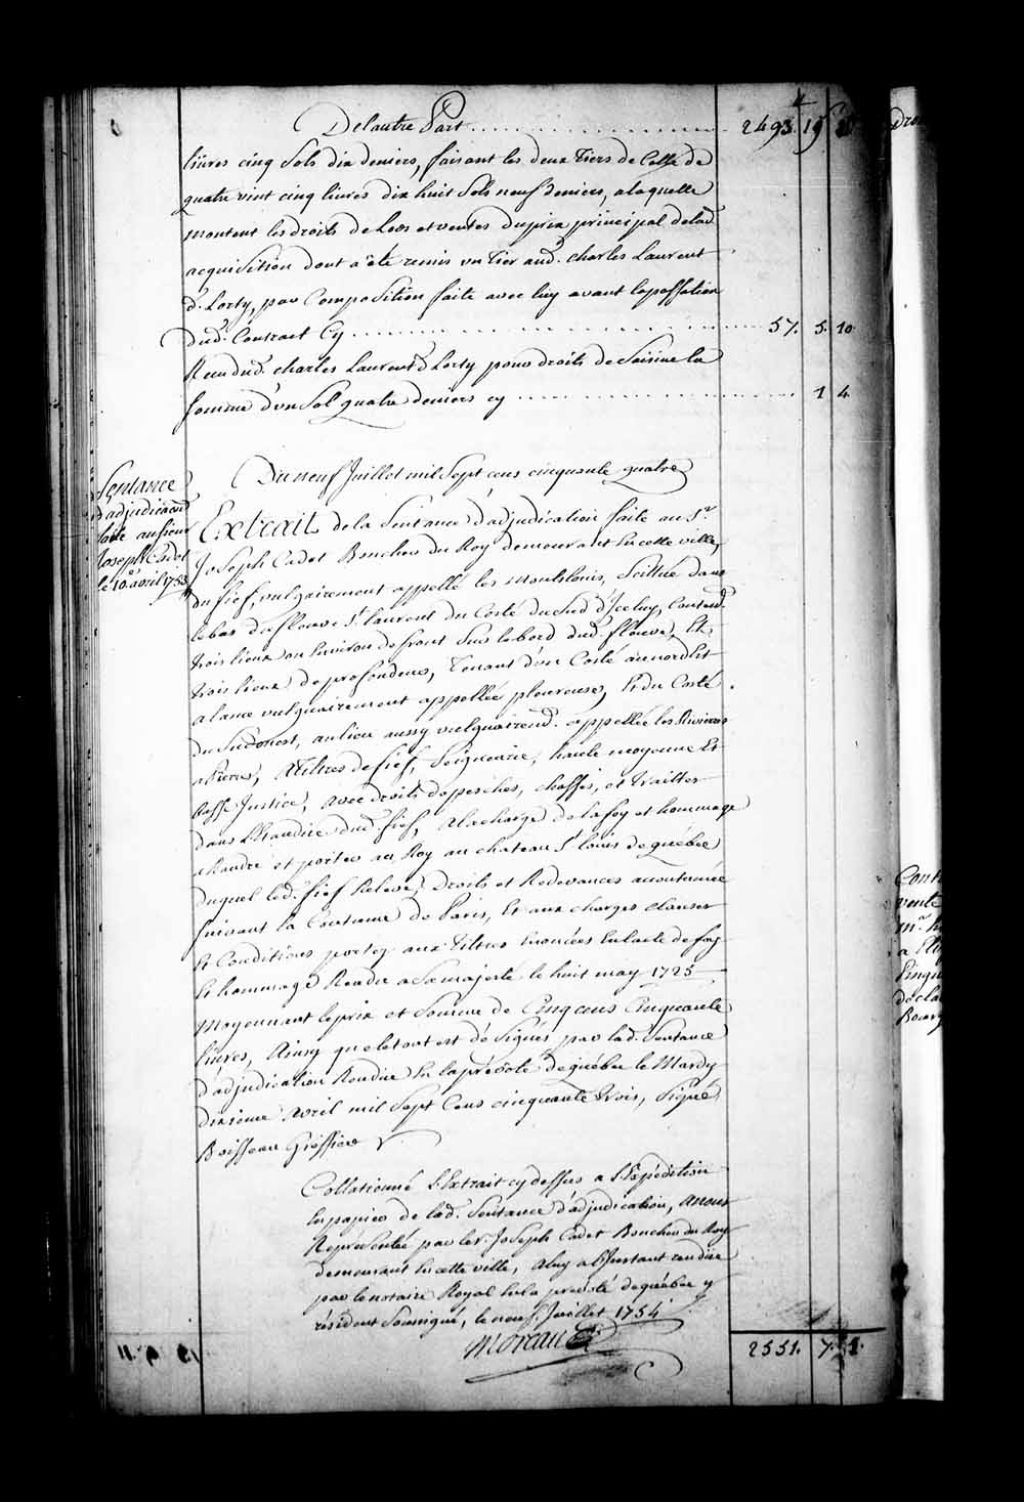 Delautre Part .............. 2493. 19
livres cinq Sols dix deniers, faisant les deux tiers de Celle de
quatre vint cinq livres dix huit Sols neuf deniers, a laquelle
montent les droits de Lods et ventes du prix principal delad.
acquisition dont a été remis un tier aud. charles Laurent
d. Lorty, par Composition faite avec luy avant lapassation
dud. Contract Cy .............. 57. 5. 10
Recu dud. charles Laurent d Lorty pour droits de Saisine la
somme d'un Sol quatre deniers cy .............. 1 4
Du neuf Juillet mil Sept cens cinquante quatre
Sentance
d'adjudicaon
faite au sieur
Joseph Cadet
le 10e. avril 1753
Extrait de la Sentance d'adjudication faite au Sr.
Joseph Cadet Boucher du Roy demeurant En cette ville,
du fief, vulgairement appellé les Montslouis, Scittué dans
le bas du fleuve St. laurent du Costé du Sud d'Iceluy, Contend.
trois lieux ou Environ de front Sur le bord dud. fleuve, Et
trois lieux de profondeur, Tenant d'un Costé au nord Est
a lance vulgairement appellée pleureuse, Et du Costé
du Sudouest, au lieu aussy vulgairemt. appellée les Rivieres
apierre, A tiltres de fief, Seigneurie, haute moyenne Et
Basse Justice, avec droits de pesches, chasses, et traittes
dans L'Etandüe dud. fief, A la charge de la foy et hommage
a Rendre et porter au Roy au chateau St. louis de quebec
duquel led. fief Releve, Droits et Redevances accoutumée
suivant la Coutume de Paris, Et aux charges clauses
Et Conditions portez aux tiltres Enoncées En lacte de foy
Et hommage Rendu a Sa majesté le huit may 1725
Moyennant le prix et Somme de Cinq cens Cinquante
livres, Ainsy que le tout est désigné par lad. Sentance
d'adjudication Rendüe En la prévôté de québec le Mardy
dixieme Avril mil Sept Cens cinquante trois, Signé
Boisseau Greffier
Collationné L'Extrait cy dessus a L'Expédition
En papier de lad. Sentance d'adjudication, A nous
Représentée par le Sr. Joseph Cadet Boucher du Roy
demeurant En cette ville, A luy a L'Instant rendüe
par le notaire Royal En la prévosté de québec y
résident Soussigné, le neuf Juillet 1754
Moreau
2551. 7. 2.